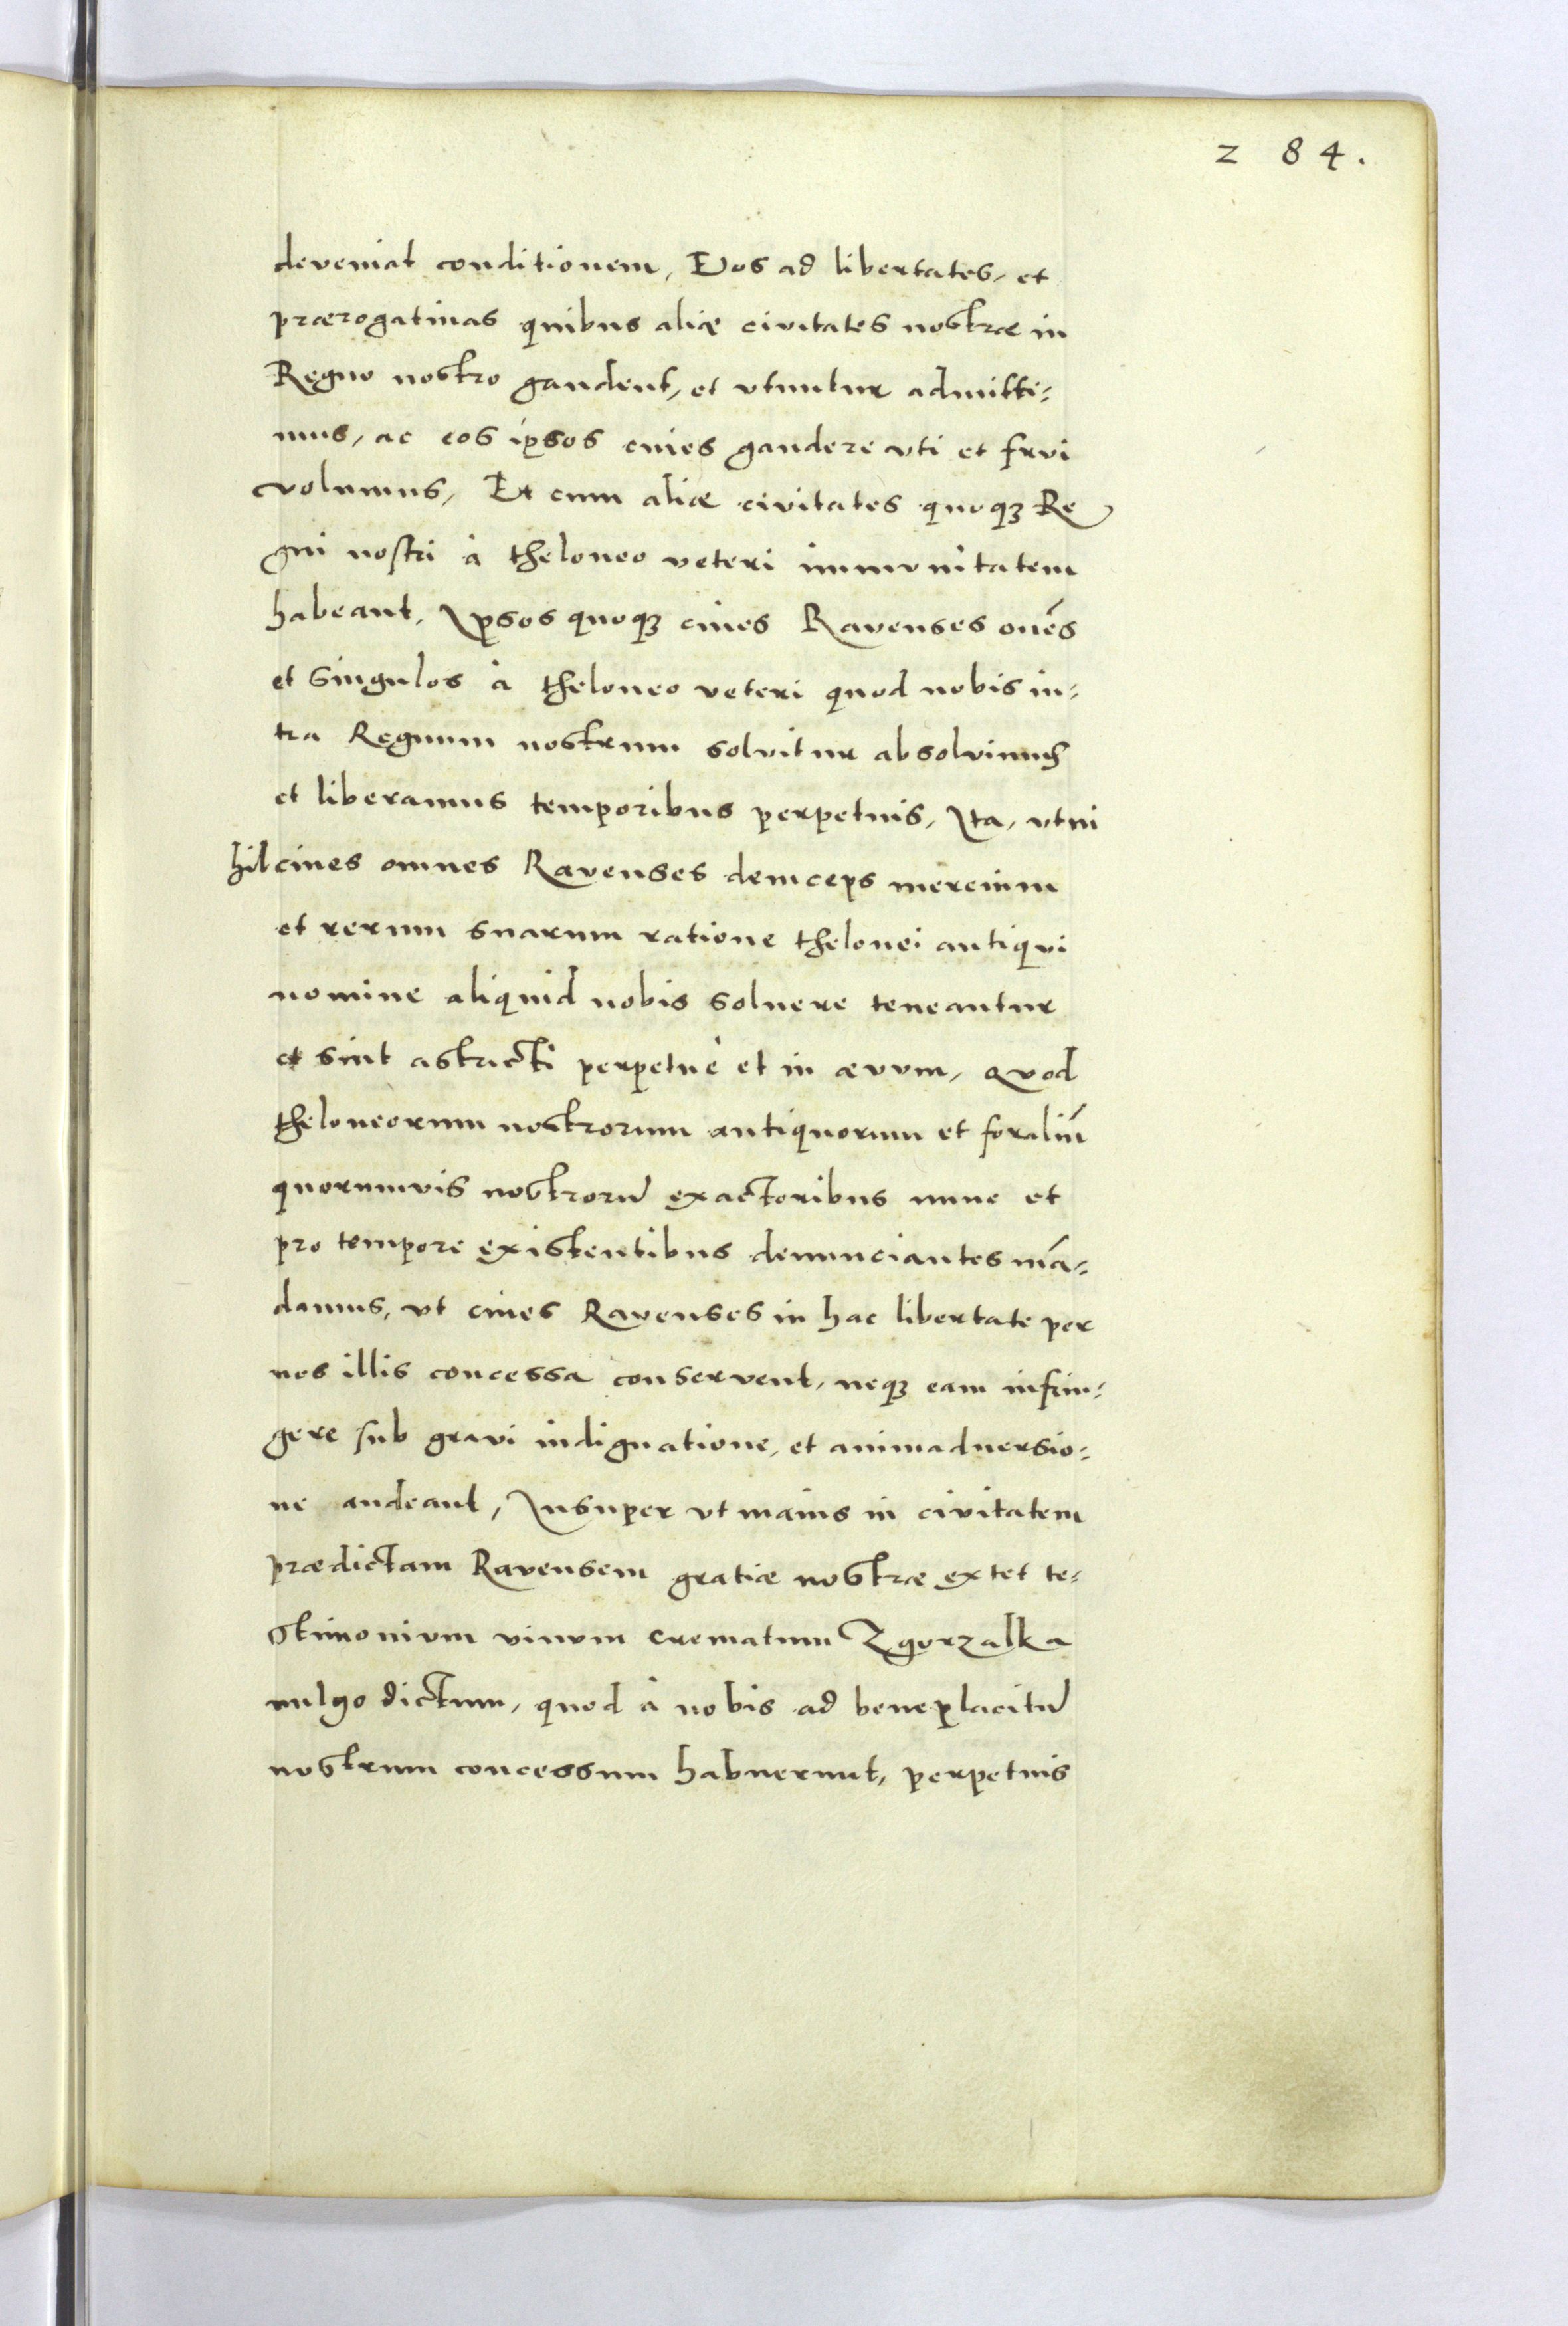 z 84.
deveniat conditionem, Eos ad libertates, et
prærogatiuas quibus aliæ civitates nostræ in
Regno nostro gaudent, et vtuntur admitti=
mus, ac eos ipsos ciues gaudere vti et frvi
volumus, Et cum aliæ civitates quoqꝫ Re
gni nostri à theloneo veteri immvnitatem
habeant, Ipsos quoqꝫ ciues Ravenses onēs
et singulos à theloneo veteri quod nobis in=
tra Regnum nostrum solvitur absolvimus
et liberamus temporibus perpetuis, Ita, vt ni
hil ciues omnes Ravenses deinceps mercium
et rerum suarum ratione thelonei antiqvi
nomine aliquid nobis soluere teneantur
et sint astricti perpetuè et in ævvm, Qvod
theloneorum nostrorum antiquorum et foraliū
quorumvis nostrorū exactoribus nunc et
pro tempore existentibus denunciantes mā=
damus, vt ciues Ravenses in hac libertate per
nos illis concessa conservent, neqꝫ eam infrin=
gere sub gravi indignatione, et animaduersio=
ne audeant, Insuper vt maius in civitatem
prædictam Ravensem gratiæ nostræ extet te=
stimonivm vinvm crematum Zgorzalka
vulgo dictum, quod à nobis ad beneplacitū
nostrum concessum habuerunt, perpetuis